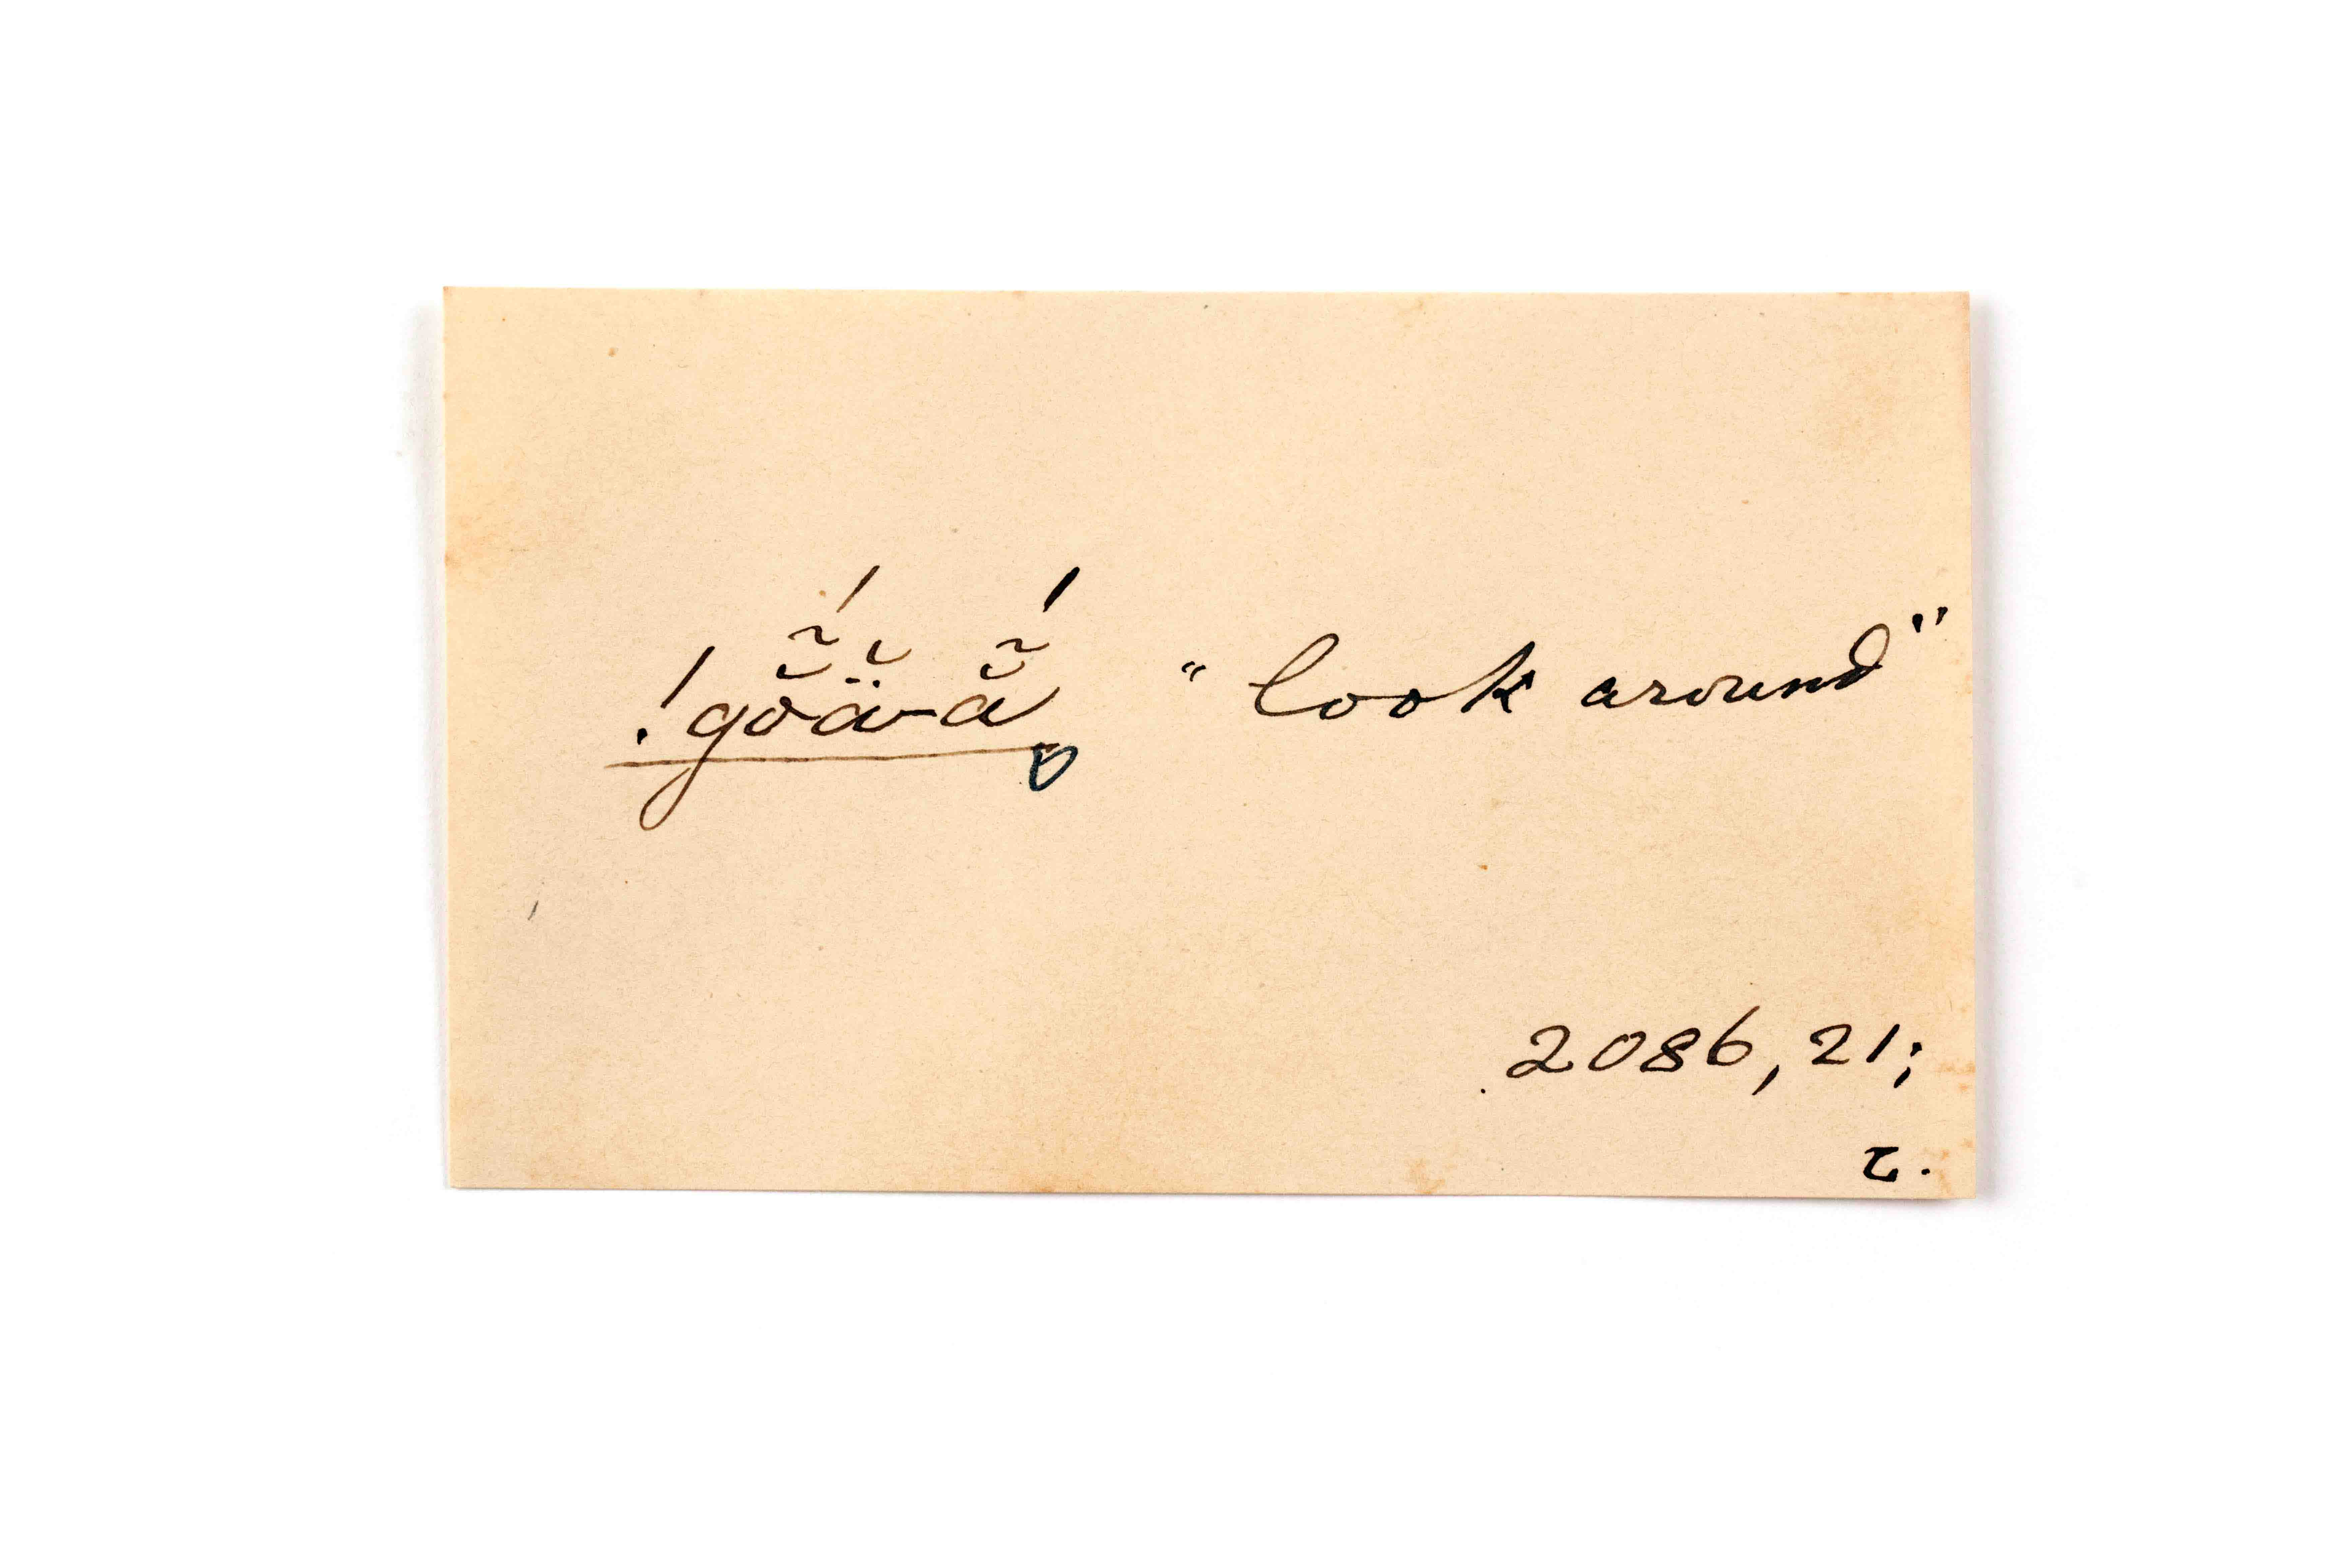 !gõ̆́ä̆-ã̆́ "look around"
2086, 21;
τ.